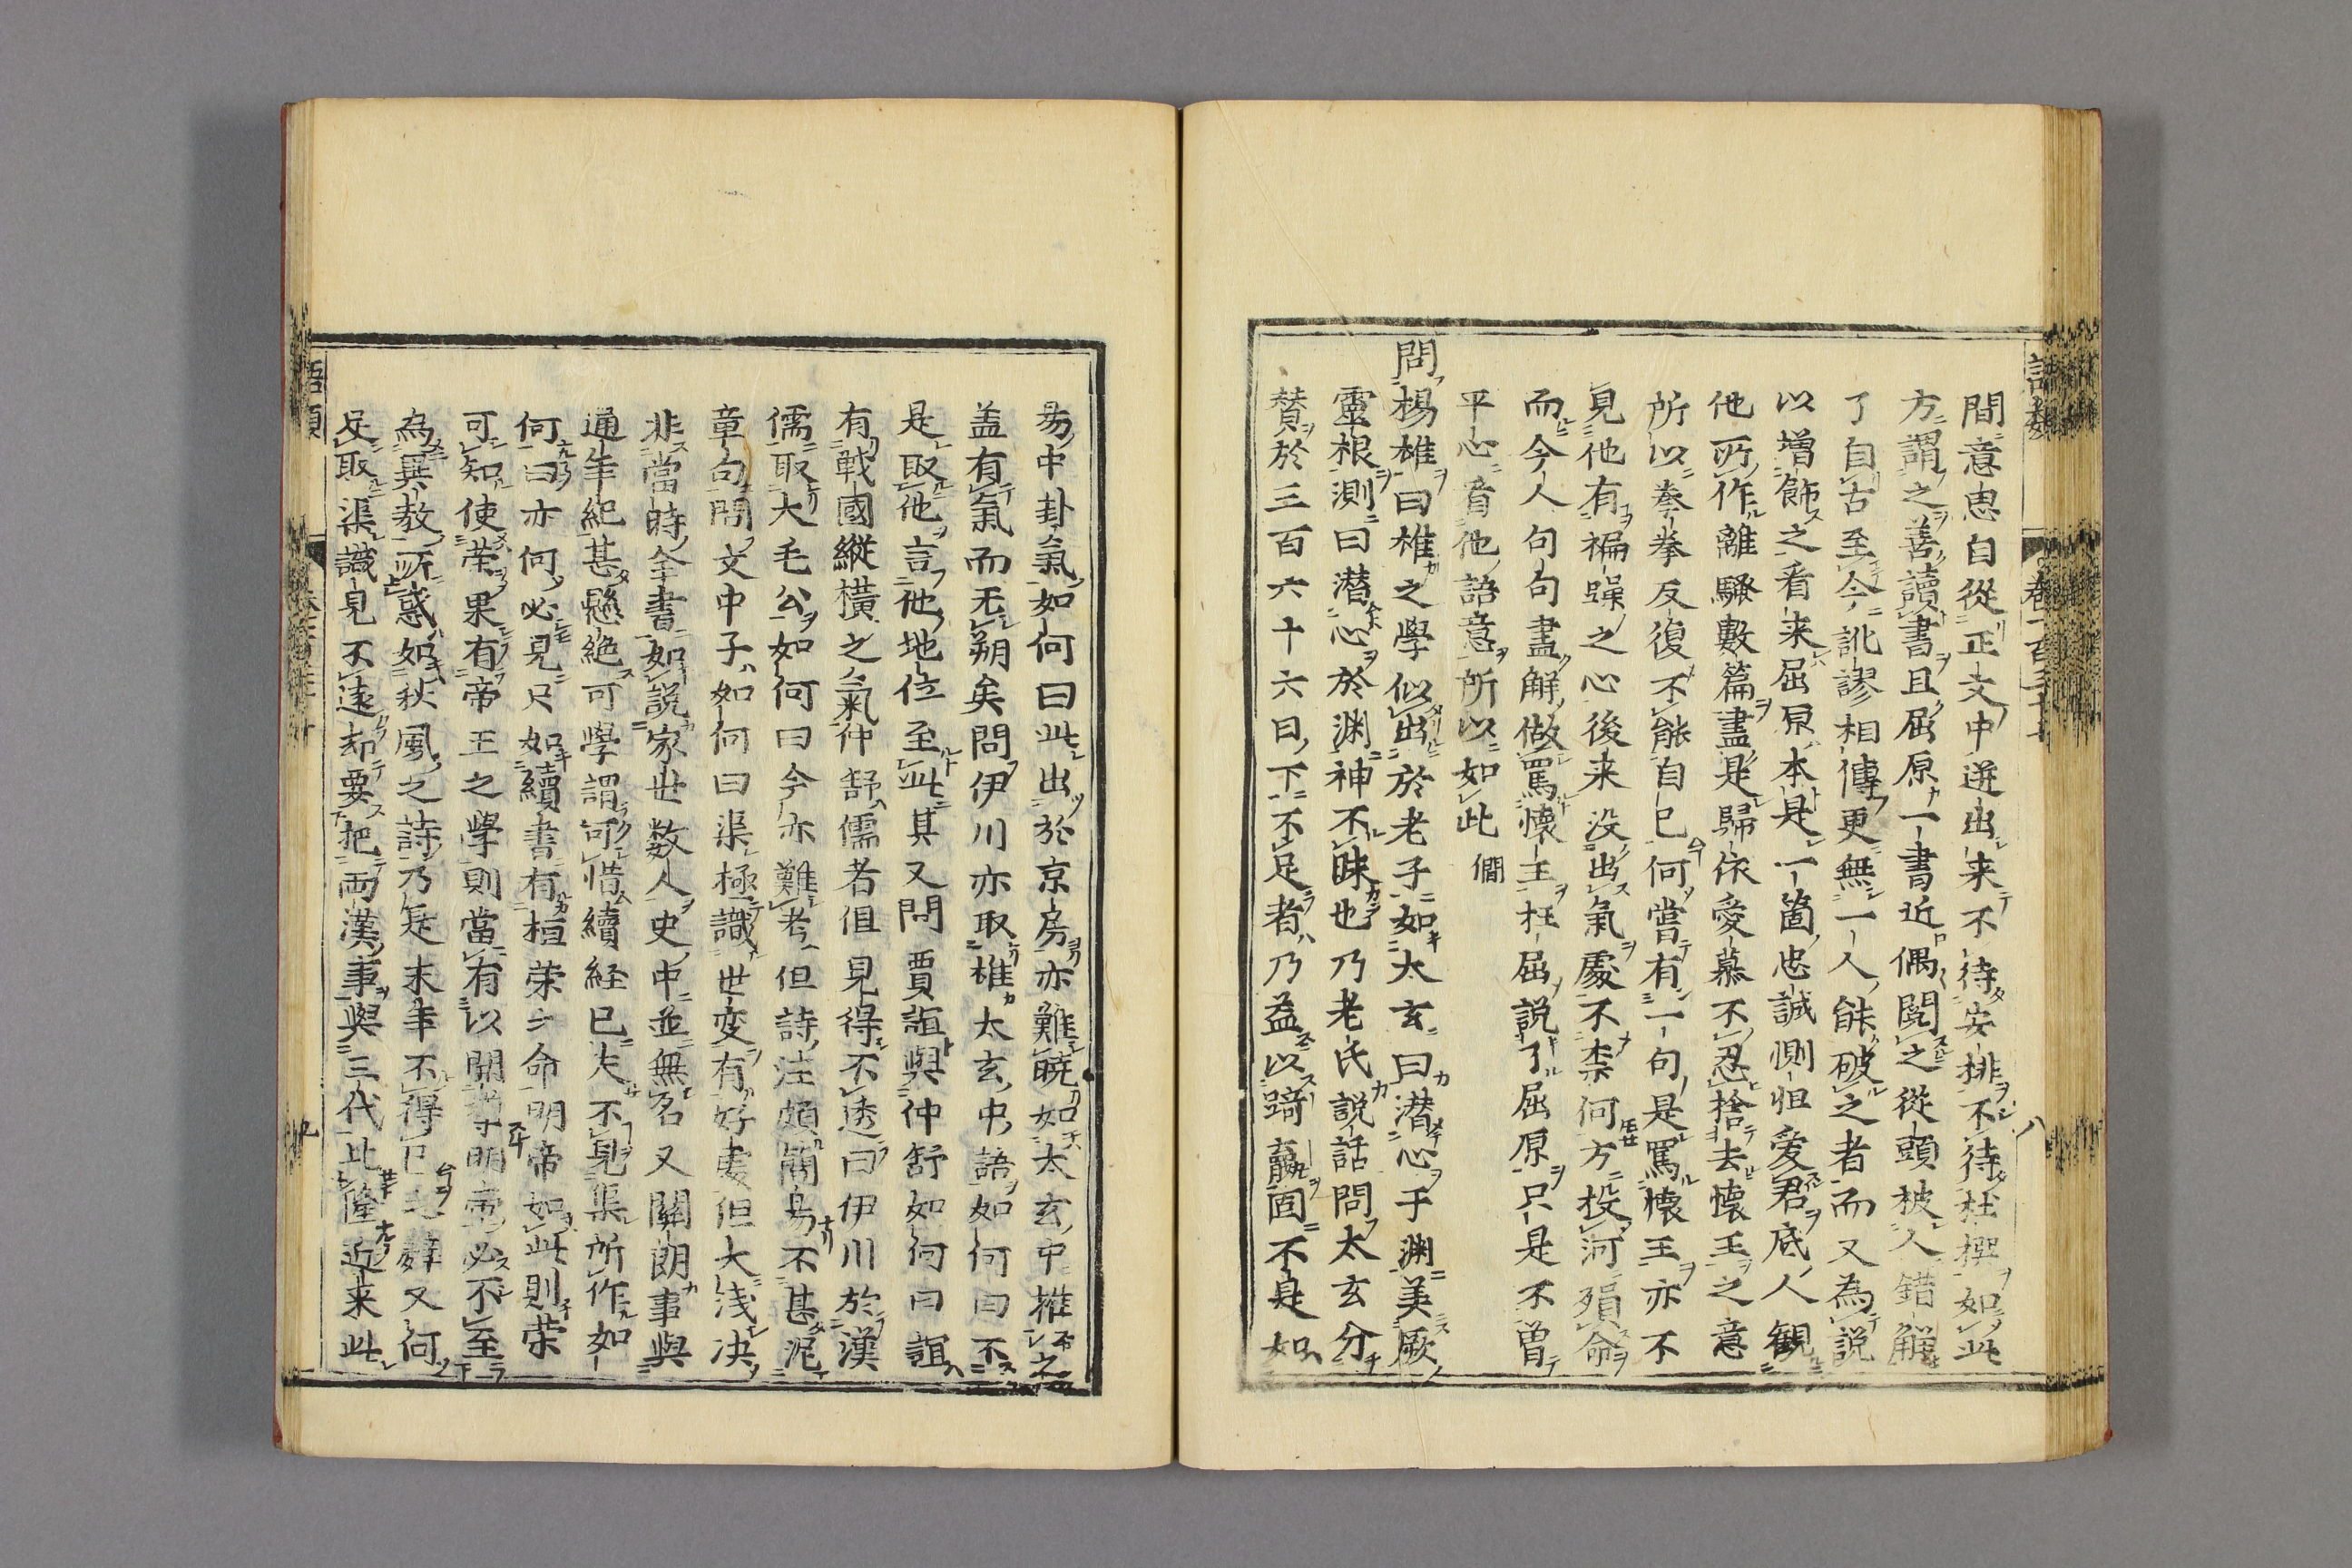 間意思自從正文中迸出来不待安排不待杜撰如此
方謂之善讀書且屈原一書近偶閲之從頭被人錯解
了自古至今訛謬相傳更無一人能破之者而又為說
以增飾之看来屈原本是一箇忠誠惻怛愛君底人観
他所作離騷數篇盡是歸依愛慕不忍捨去懐王之意
所以拳拳反復不能自已何嘗有一句是罵懐王亦不
見他有褊躁之心後来没出氣處不柰何方投河殞命
而今人句句盡解做罵懐王枉屈說了屈原只是不曽
平心看他語意所以如此 僩
問楊雄曰雄之學似出於老子如太玄曰潜心于渊美厥
靈根測曰潜心於渊神不昧也乃老氏說話問太玄分
賛於三百六十六日下不足者乃益以踦嬴固不是如
易中卦氣如何曰此出於京房亦難暁如太玄中推之
盖有氣而无朔矣問伊川亦取雄太玄中語如何曰不
是取他言他地位至此其又問賈誼與仲舒如何曰誼
有戰國縱横之氣仲舒儒者但見得不透曰伊川於漢
儒取大毛公如何曰今亦難考但詩注頗簡易不甚泥
章句問文中子如何曰渠極識世変有好處但大浅决
非當時全書如說家世数人史中並無名又關朗事與
通年紀甚懸絶可學謂可惜續経已失不見渠所作如
何曰亦何必見只如續書有桓榮之命明帝如此則荣
可知使荣果有帝王之學則當有以開導明帝必不至
為異教所惑如秋風之詩乃是末年不得已之辭又何
足取渠識見不遠却要把両漢事與三代比隆近来此
語類
八
語類
九